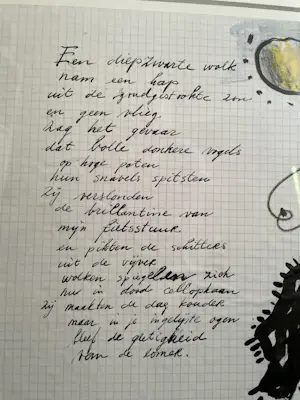 Een diepzwarte wolk
nam een hap
uit de goudgestookte zon
en geen vlieg
zag het gevaar
dat bolle donkere vogels
op hoge poten
hun snavels spitsten
zij verslonden
de brillantine van
mijn fietsstuur
en pikten de schitters
uit de vijver
wolken spiegelen zich
nu in dood cellophaan
zij maakten de dag kouder
maar in je ingelijste ogen
bleef de gretigheid
van de zomer.